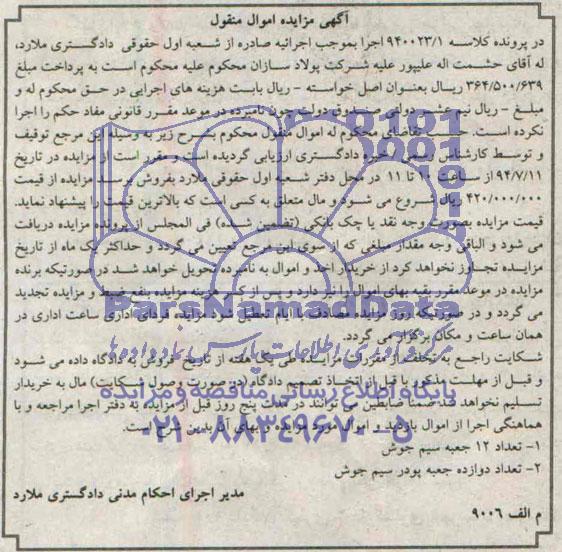 آگهی مزایده اموال منقول
در پرونده کلاسه ۹۴۰۰۲۳/۱ اجرا بموجب اجرائیه صادره از شعبه اول حقوقی دادگستری ملارد،
له آقای حشمت اله علیپور علیه شرکت پولاد سازان محکوم علیه محکوم است به پرداخت مبلغ
۳۶۴/۵۰۰/۶۳۹ ریسال بعنوان اصل خواسته - ریال بابت هزینه های اجرایی در حق محکوم له و
مبلغ - ریال نیم عشر دولتی صندوق دولت چون نامبرده در موعد مقرر قانونی مفاد حکم را اجرا
نکرده است. حسب تقاضای محکوم له اموال منقول محکوم بشرح زیر به وسیله این مرجع توقیف
و توسط کارشناس رسمی خبره دادگستری ارزیابی گردیده است و مقرر است از مزایده در تاریخ
۹۴/۷/۱۱ از ساعت ۱۰ تا ۱۱ در محل دفتر شعبه اول حقوقی ملارد بفروش برسد مزایده از قیمت
۴۲۰/۰۰۰/۰۰۰ ریال شروع می شود و مال متعلق به کسی است که بالاترین قیمت را پیشنهاد نماید.
قیمت مزایده بصورت وجه نقد یا چک بانکی (تضمین شده) فی المجلس از برنده مزایده دریافت
می شود و الباقی وجه مقدار مبلغی که از سوی این مرجع تعیین می گردد و حداکثر یک ماه از تاریخ
مزایده تجاوز نخواهد کرد از خریدار اخذ و اموال به نامبرده تحویل خواهد شد در صورتیکه برنده
مزایده در موعد مقرر بقیه بهای اموال را نپردازد و پس از کسر هزینه مزایده بنفع ضبط و مزایده تجدید
می گردد و در صورتیکه روز مزایده مصادف با ایام تعطیل شود مزایده فردای اداری ساعت اداری در
همان ساعت و مکان برگزار می گردد.
شکایت راجع به تخلف از مقررات مزایده طی یک هفته از تاریخ فروش به دادگاه داده می شود
و قبل از مهلت مذکور یا قبل از اتخاذ تصمیم دادگاه (در صورت وصول شکایت) مال به خریدار
تسلیم نخواهد شد ضمنا متقاضیان می توانند در مدت پنج روز قبل از مزایده به دفتر اجرا مراجعه و با
هماهنگی اجرا از اموال بازدید و اموال مورد مزایده و بهای آن بدین شرح است.
۱- تعداد ۱۲ جعبه سیم جوش
۲- تعداد دوازده جعبه پودر سیم جوش
مدیر اجرای احکام مدنی دادگستری ملارد
م الف ۹۰۰۶
ParsNamadData
پایگاه اطلاع رسانی مناقصه و مزایده
۰۲۱-۸۸۳۴۹۶۷۰-۵